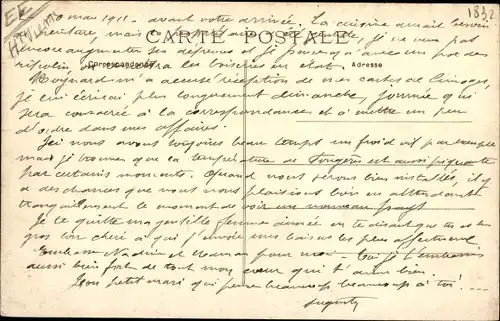 EE
1832
CARTE POSTALE
Correspondance
Adresse
10 mai 1911 - avant votre arrivée. La cuisine aurait besoin
peinture, mais je ne veux pas
encore augmenter les dépenses et je avec un peu de
ripolin les boiseries en état.
m'a accusé réception de mes cartes de Limoges,
je lui écrirai plus longuement dimanche, journée qui
sera consacrée à la correspondance et à mettre un peu
d'ordre dans mes affaires.
Ici nous avons toujours beau temps un froid vif par exemple
mais je trouve que la température de Fougères est aussi piquante
par certains moments. Quand nous serons bien installés, il y
a des chances que nous nous plaisions bien en attendant
tranquillement le moment de voir un nouveau pays
Je te quitte ma gentille femme aimée en te disant que tu es ton
gros lon chéri à qui j'envoie mes baisers les plus affectueux
Embrasse et maman pour moi - Toi je t'embrasse
aussi bien fort de tout mon cœur qui t'aime bien.
Ton petit mari qui pense beaucoup beaucoup à toi!
Auguste